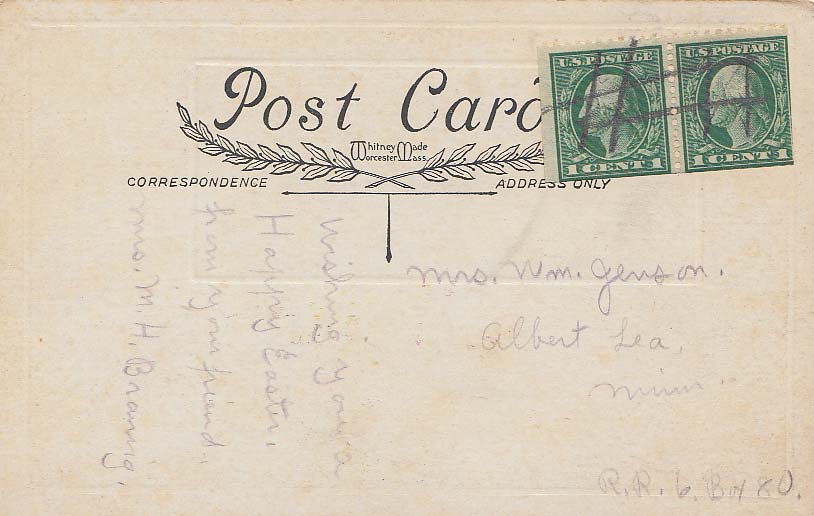 Post Card
Whitney Made
Worcester Mass.
CORRESPONDENCE
ADDRESS ONLY
U.S. POSTAGE
1 CENT 1
U.S. POSTAGE
1 CENT 1
Wishing you a
Happy Easter.
from your friend.
Mrs. M. H.
Mrs. Wm. Jenson.
Albert Lea,
Minn.
R.R. 6. Box